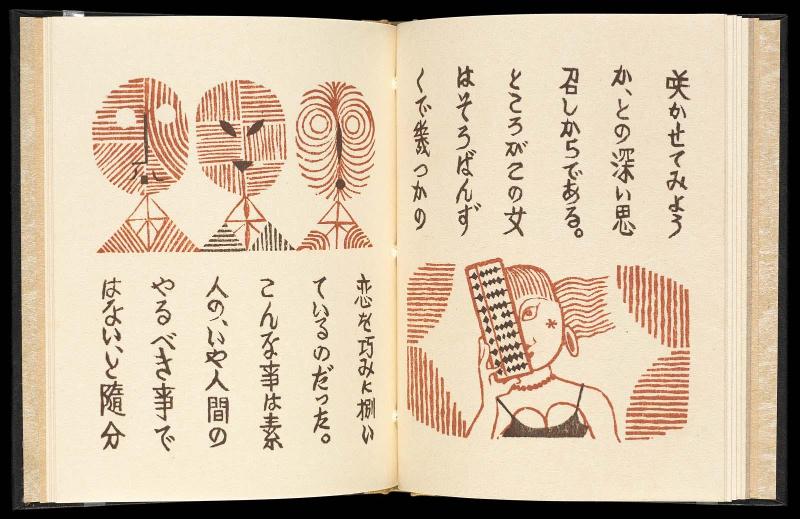 咲かせてみよう
か、との深い思
召しからである。
ところがこの女
はそろばんず
くで幾つかの
恋を巧みに捌い
ているのだった。
こんな事は素
人の、いや人間の
やるべき事で
はない、と隨分